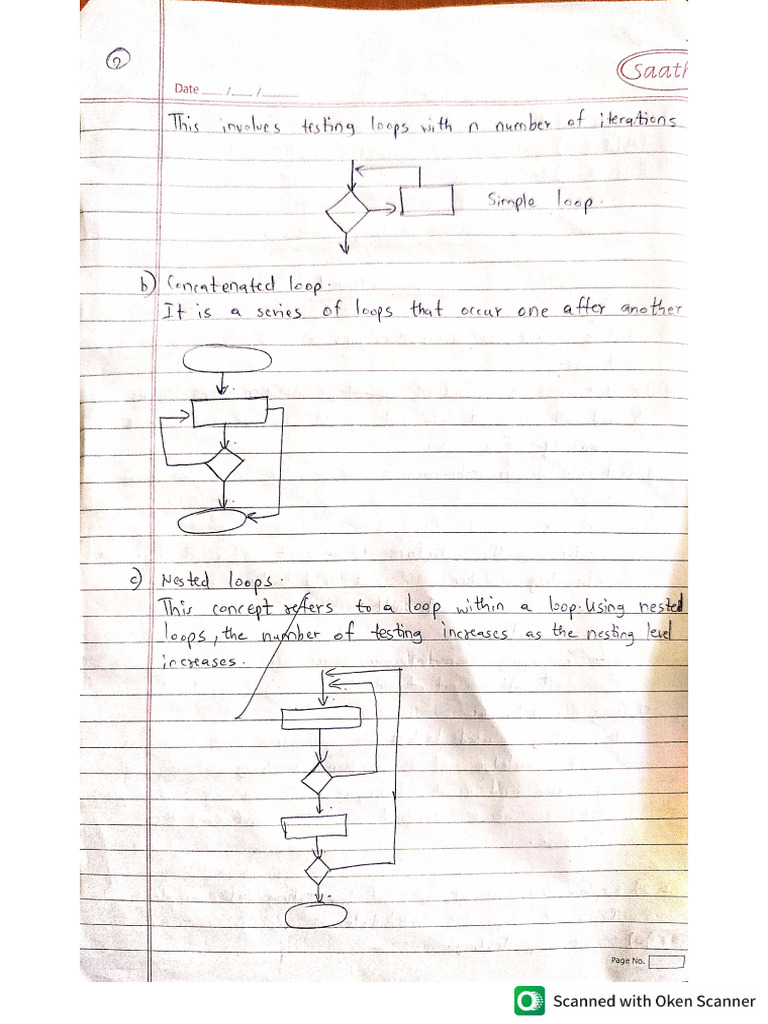 2
saath
Date __/__/____
This involves testing loops with n number of iterations
Simple loop.
b) Concatenated loop.
It is a series of loops that occur one after another
c) Nested loops.
This concept refers to a loop within a loop. Using nested
loops, the number of testing increases as the nesting level
increases.
Page No.
Scanned with Oken Scanner